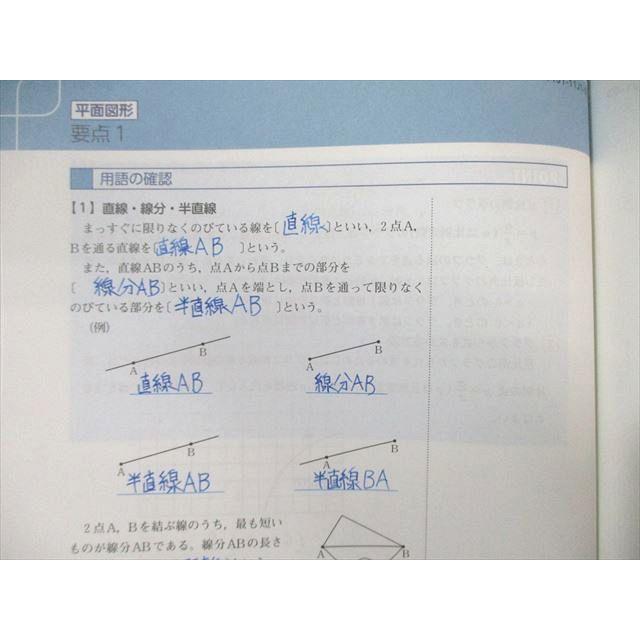 平面図形
要点1
用語の確認
【1】直線・線分・半直線
まっすぐに限りなくのびている線を〔直線〕といい，2点A，
Bを通る直線を〔直線AB〕という。
また，直線ABのうち，点Aから点Bまでの部分を
〔線分AB〕といい，点Aを端とし，点Bを通って限りなく
のびている部分を〔半直線AB〕という。
（例）
A B
直線AB
A B
線分AB
A B
半直線AB
A B
半直線BA
2点A，Bを結ぶ線のうち，最も短い
ものが線分ABである。線分ABの長さ
A B